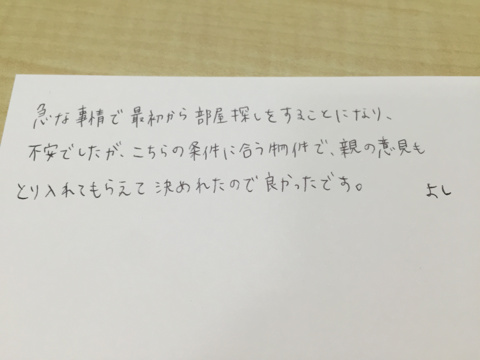 急な事情で最初から部屋探しをすることになり、
不安でしたが、こちらの条件に合う物件で、親の意見も
とり入れてもらえて決めれたので良かったです。 よし